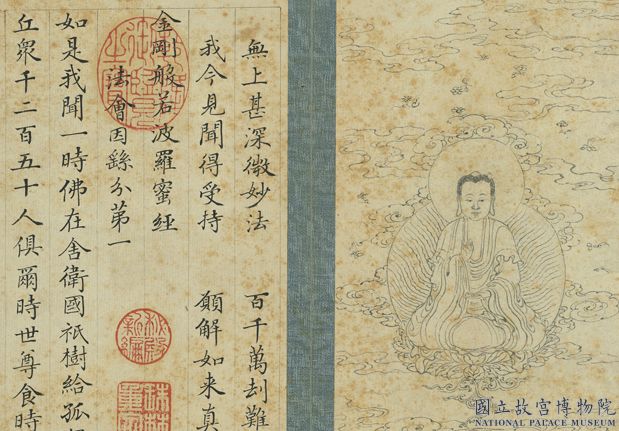 無上甚深微妙法 百千萬刦難
我今見聞得受持 願解如来真
金剛般若波羅蜜經
法會因繇分苐一
如是我聞一時佛在舍衛國祇樹給孤
丘眾千二百五十人俱爾時世尊食時
秘殿
新編
國立故宮博物院
NATIONAL PALACE MUSEUM